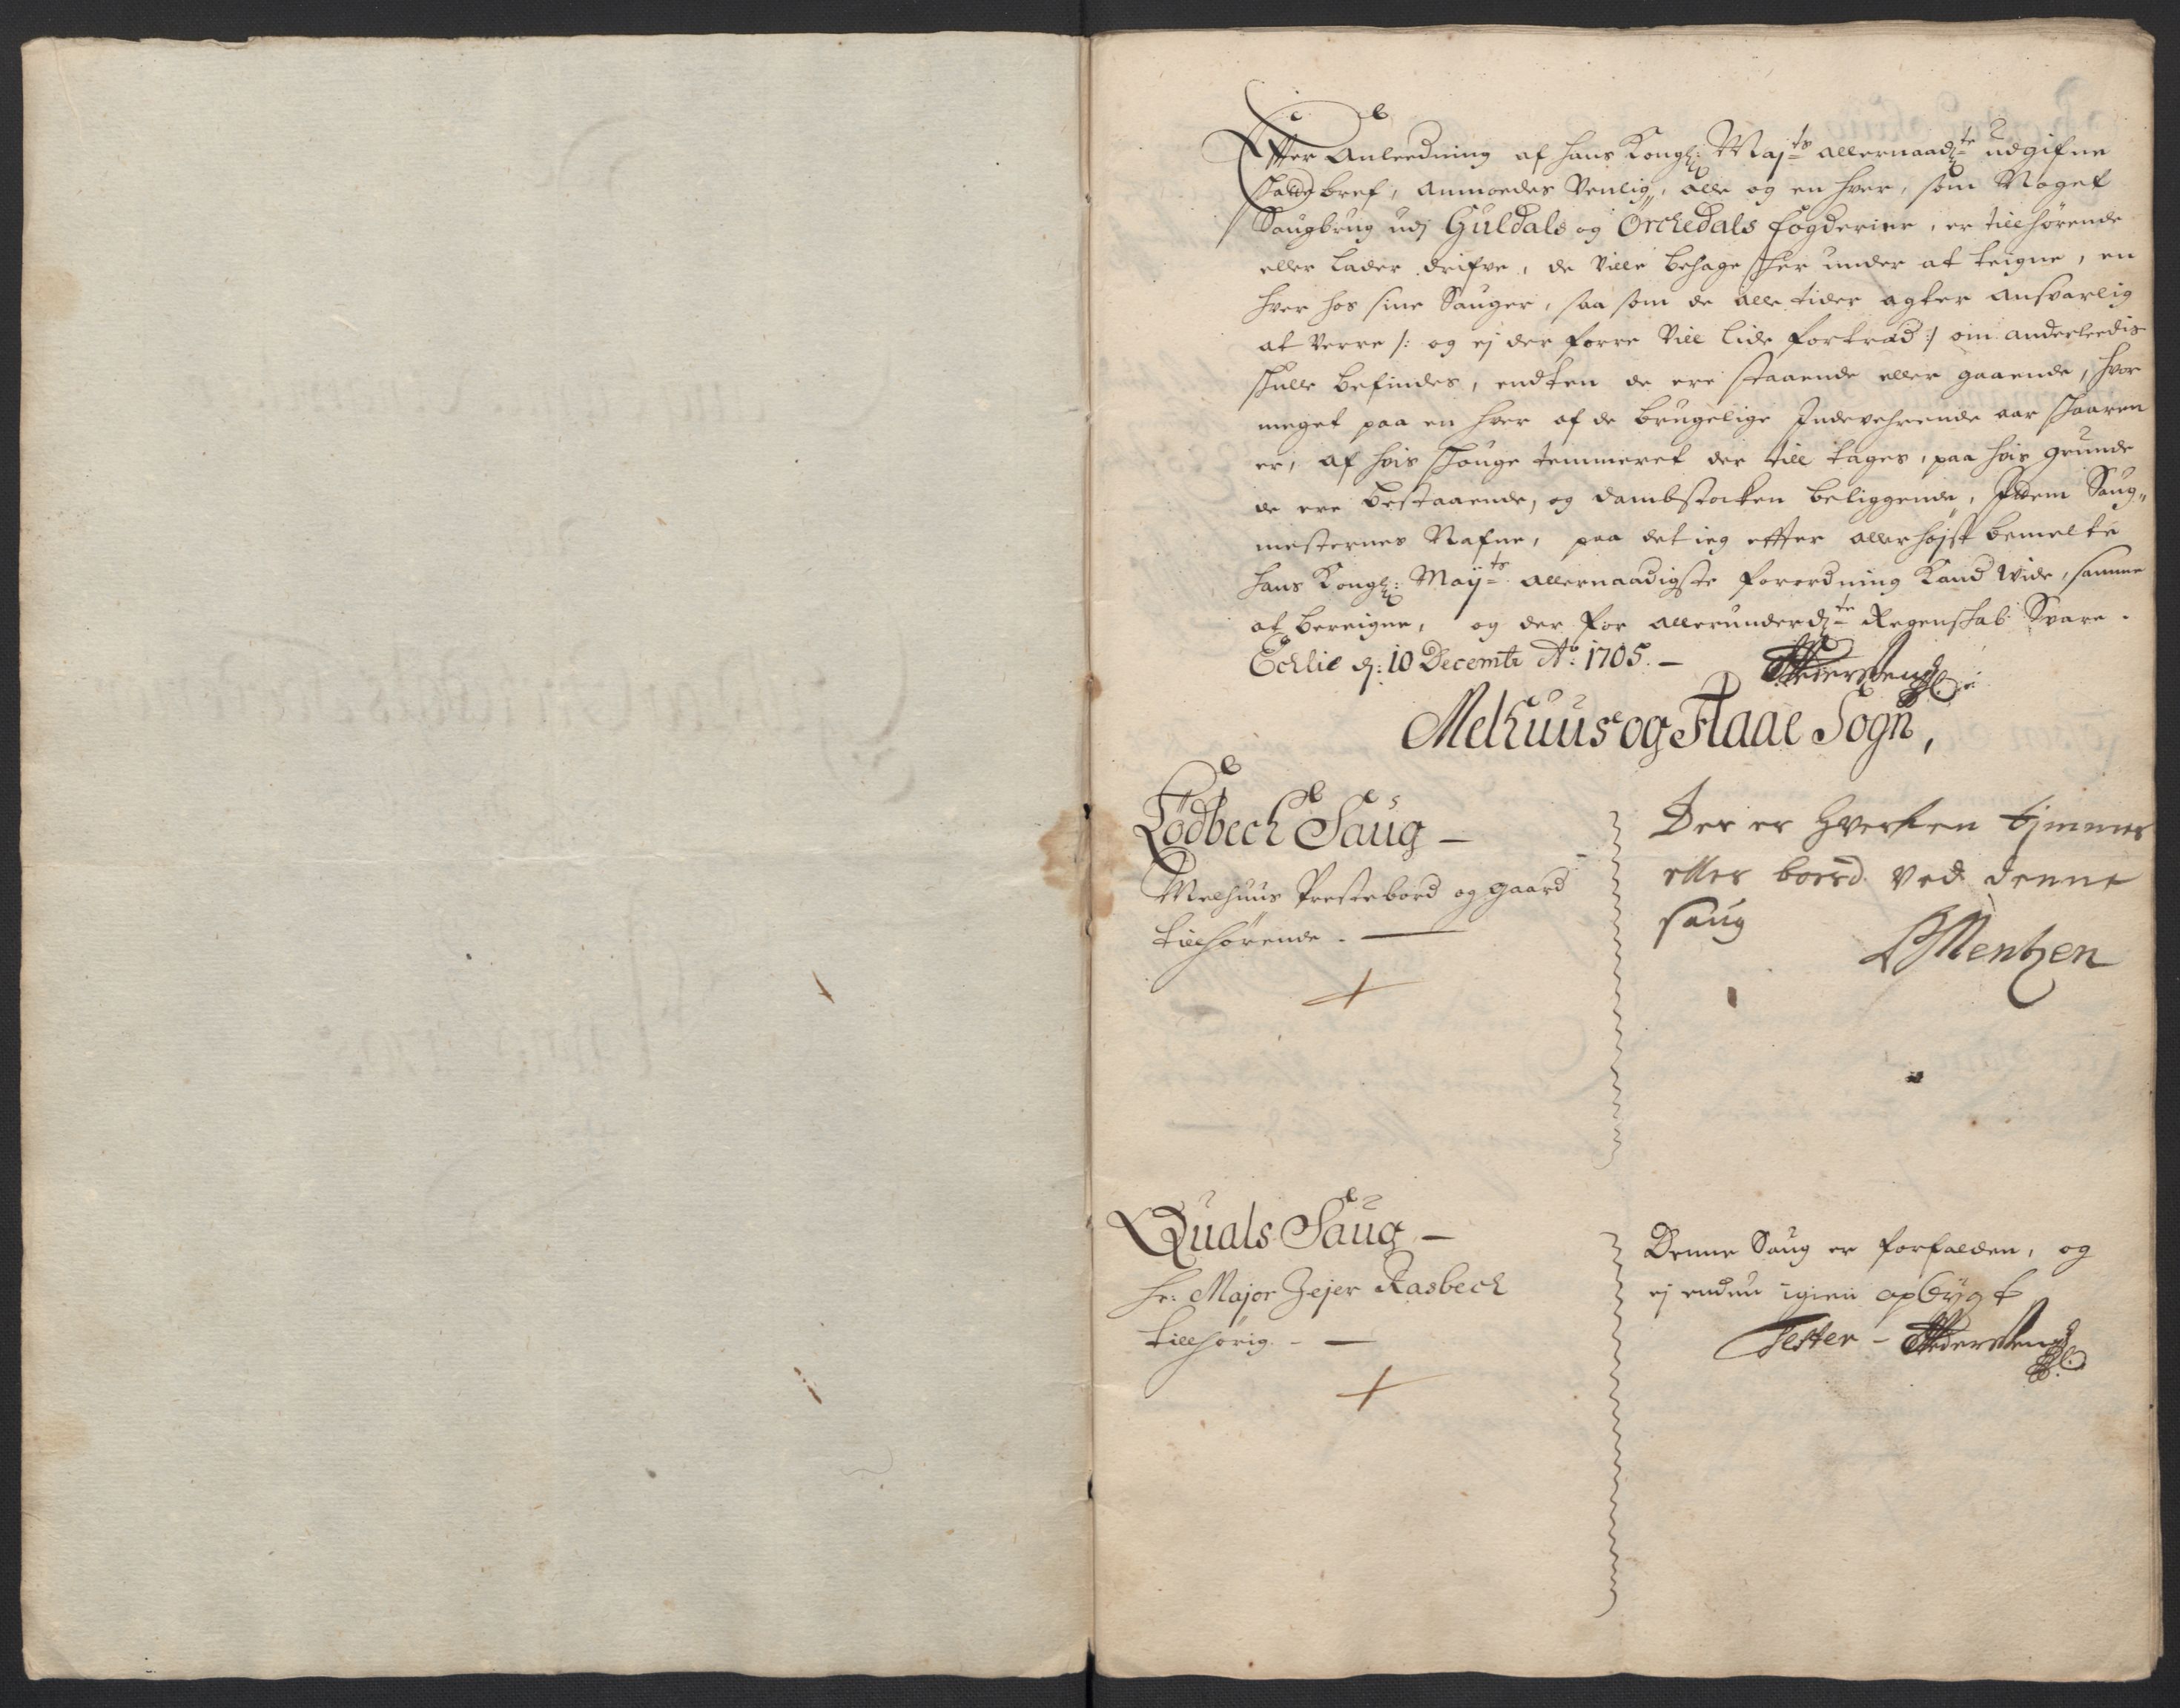 Effter Anleedning af Hans Kongl: Maj:ts allernaadl:te udgifne
skattebref, anmoedes venlig, alle og en hver, som Noget
Saugbrug udj Guldals og Orckedals fogderier, er tillhørende
eller lader drifve, de ville behage her under at teigne, en
hver hos sine Sauger, saa som de alle tider agter ansvarlig
at verre /: og ej der forre vill lide fortræd :/ om anderleedis
skulle befindes, endten de ere staaende eller gaaende, hvor
meget paa en hver af de brugelige Indeverende aar skaaren
er, af hvis skouge temmeret der till tages, paa hvis grunde
de ere bestaaende, og dambstocken beliggende, Item Saug„
mesternes Nafne, paa det ieg effter allerhøjst bemelte
Hans Kongl: Maij:ts allernaadigste forordning kand vide, samme
at bereigne, og der for allerunderd:te Regenskab Svare.
Echlie d: 10 Decembr A:o 1705. –
Melhuus og Flaae Sogn,
Lødbech Saug –
Melhuus Prestebord og gaard
tillhørende. –
Der er hverken tjmmer
eller boerd ved denne
saug
Mentzen
Quals Saug –
Hr. Major Jejer Rasbech
tillhørig. – –
Denne Saug er forfalden, og
ej endnu igien opbÿgt
Tester –